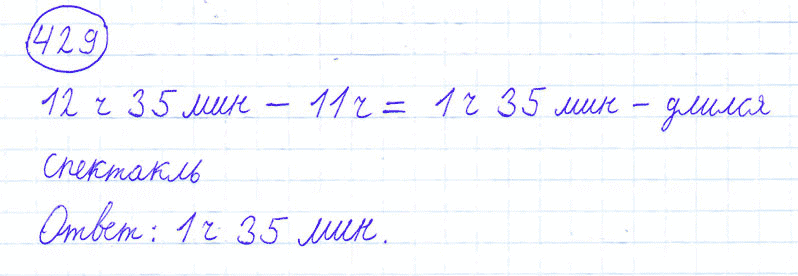 429
12 ч 35 мин - 11 ч = 1 ч 35 мин - длился
спектакль
Ответ: 1 ч 35 мин.